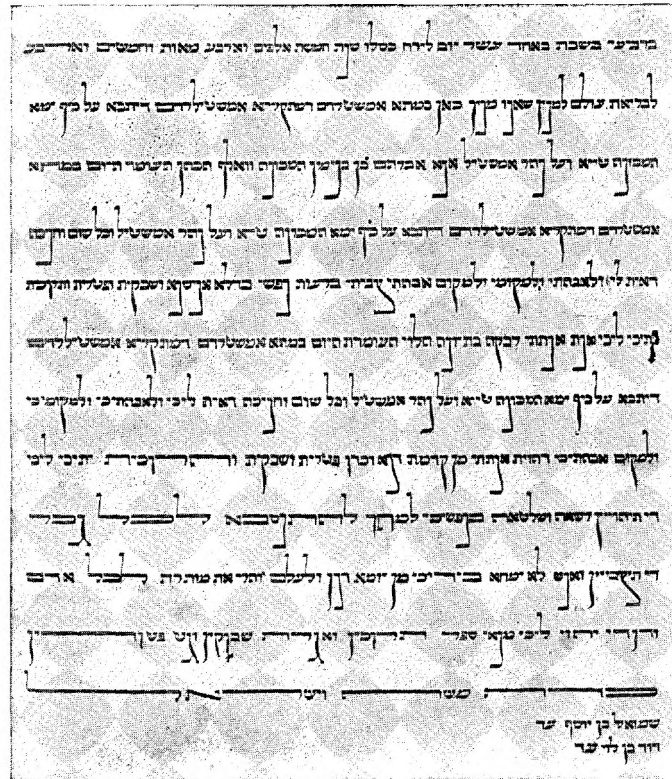 ברביעי בשבת באחד עשר יום לירח כסלו שנת חמשת אלפים וארבע מאות וחמשים וארבע
לבריאת עולם למנין שאנו מנין כאן במתא אמשטלרדם דמתקריא אמשטילרדם דיתבא על כיף ימא
המכונה טייא ועל נהר אמשטיל אנא אברהם בן בנימין המכונה וואלף הכהן העומד היום במתא
אמשטלרדם דמתקריא אמשטילרדם דיתבא על כיף ימא המכונה טייא ועל נהר אמשטיל וכל שום וחניכה
דאית לי ולאבהתי ולמקומי ולמקום אבהתי צביתי ברעות נפשי בדלא אניסנא ושבקית ופטרית ותרוכית
יתיכי ליכי אנת אנתתי רבקה בת יונה הלוי העומדת היום במתא אמשטלרדם דמתקריא אמשטילרדם
דיתבא על כיף ימא המכונה טייא ועל נהר אמשטיל וכל שום וחניכה דאית ליכי ולאבהתיכי ולמקומיכי
ולמקום אבהתיכי דהוית אנתתי מן קדמת דנא וכדו פטרית ושבקית ותרוכית יתיכי ליכי
די תיהוויין רשאה ושלטאה בנפשיכי למהך להתנסבא לכל גבר
די תיצבייין ואנש לא ימחא בידיכי מן יומא דנן ולעלם והרי את מותרת לכל אדם
ודן די יהוי ליכי מנאי ספר תרוכין ואגרת שבוקין וגט פטורין
כדת משה וישראל
שמואל בן יוסף עד
דוד בן עד